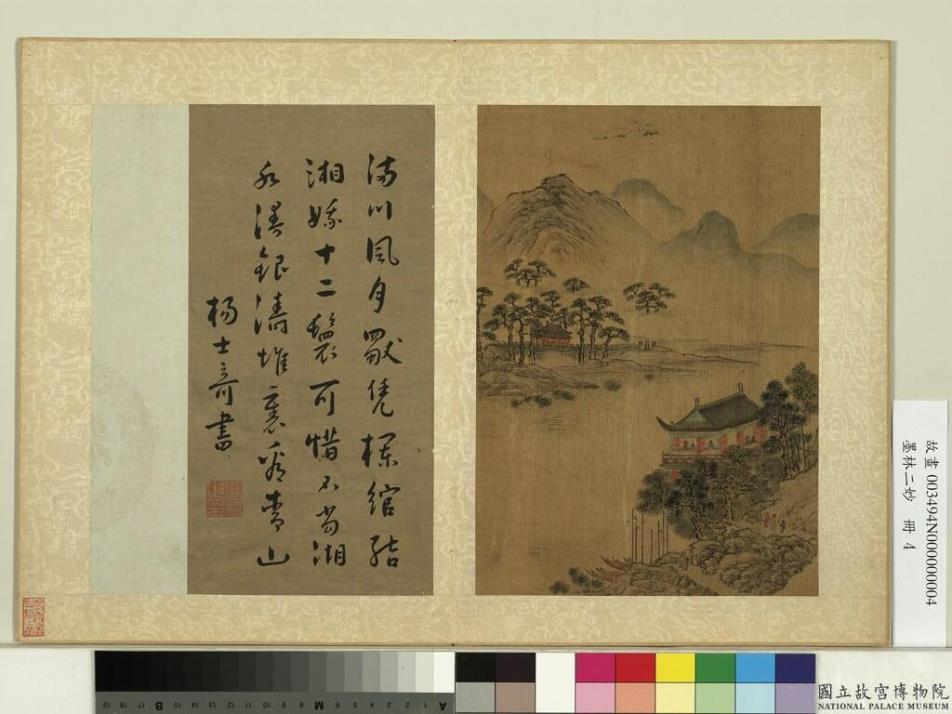 滿川風月獨凭欄綰結
湘娥十二鬟可惜不當湖
水漫銀濤堆裏看青山
楊士奇書
故畫 003494N000000004
墨林二妙 冊 4
國立故宮博物院
NATIONAL PALACE MUSEUM